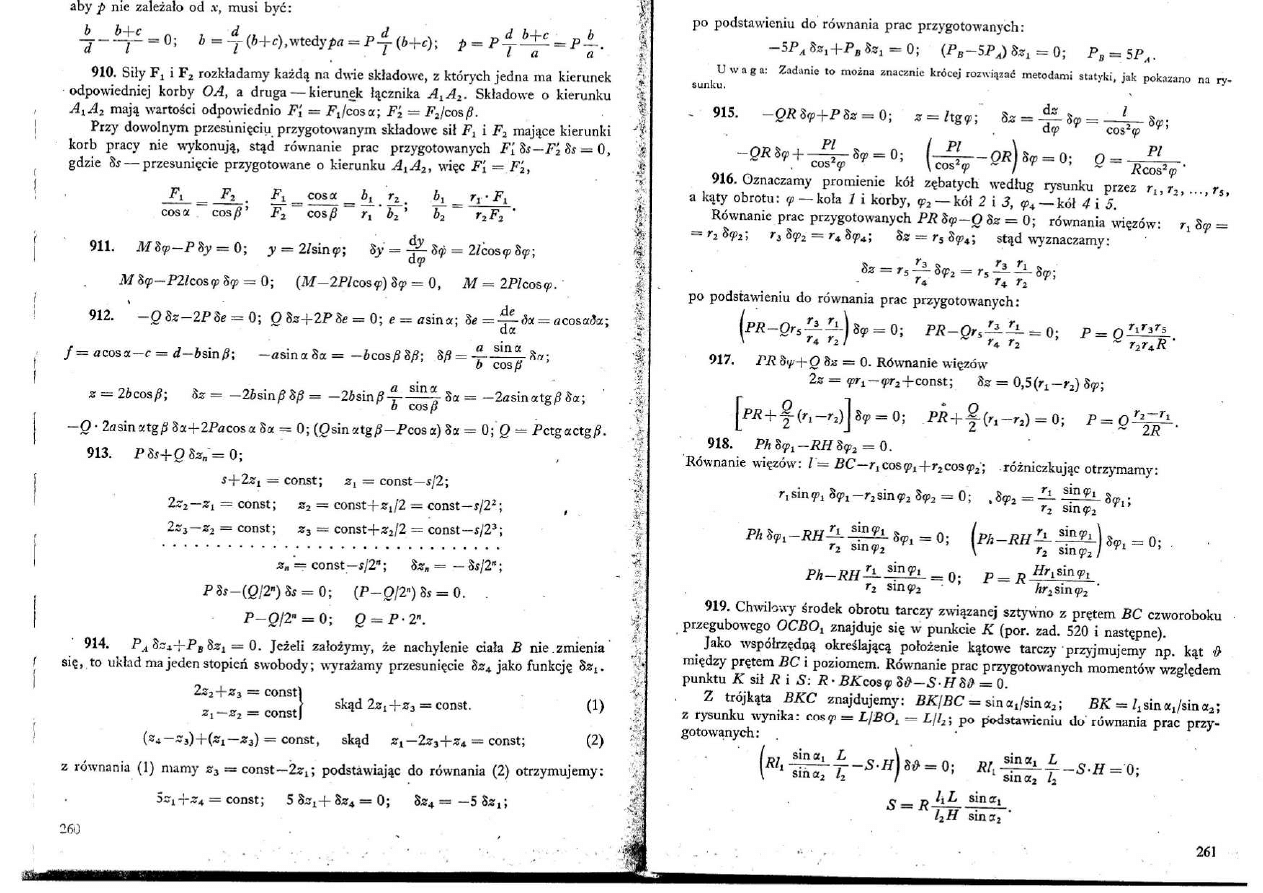 aby p nie zależało od x, musi być:
b/d − (b+c)/l = 0; b = d/l (b+c), wtedy pa = P d/l (b+c); p = P d/l (b+c)/a = P b/a.
910. Siły F₁ i F₂ rozkładamy każdą na dwie składowe, z których jedna ma kierunek
odpowiedniej korby OA, a druga — kierunek łącznika A₁A₂. Składowe o kierunku
A₁A₂ mają wartości odpowiednio F₁′ = F₁/cos α; F₂′ = F₂/cos β.
Przy dowolnym przesunięciu przygotowanym składowe sił F₁ i F₂ mające kierunki
korb pracy nie wykonują, stąd równanie prac przygotowanych F₁′ δs−F₂′ δs = 0,
gdzie δs — przesunięcie przygotowane o kierunku A₁A₂, więc F₁′ = F₂′,
F₁/cos α = F₂/cos β; F₁/F₂ = cos α/cos β = b₁/r₁ · r₂/b₂; b₁/b₂ = r₁·F₁/r₂F₂.
911. M δφ−P δy = 0; y = 2l sin φ; δy = dy/dφ δφ = 2l cos φ δφ;
M δφ−P2l cos φ δφ = 0; (M−2Pl cos φ) δφ = 0, M = 2Pl cos φ.
912. −Q δz−2P δe = 0; Q δz+2P δe = 0; e = a sin α; δe = de/dα δα = a cos α δα;
f = a cos α−c = d−b sin β; −a sin α δα = −b cos β δβ; δβ = a/b sin α/cos β δα;
z = 2b cos β; δz = −2b sin β δβ = −2b sin β a/b sin α/cos β δα = −2a sin α tg β δα;
−Q · 2a sin α tg β δα+2Pa cos α δα = 0; (Q sin α tg β−P cos α) δα = 0; Q = P ctg α ctg β.
913. P δs+Q δzₙ = 0;
s+2z₁ = const; z₁ = const−s/2;
2z₂−z₁ = const; z₂ = const+z₁/2 = const−s/2²;
2z₃−z₂ = const; z₃ = const+z₂/2 = const−s/2³;
. . . . . . . . . . . . . . . . . . . . . . . . . . . . . . . .
zₙ = const−s/2ⁿ; δzₙ = − δs/2ⁿ;
P δs−(Q/2ⁿ) δs = 0; (P−Q/2ⁿ) δs = 0.
P−Q/2ⁿ = 0; Q = P · 2ⁿ.
914. P_A δz₄+P_B δz₁ = 0. Jeżeli założymy, że nachylenie ciała B nie zmienia
się, to układ ma jeden stopień swobody; wyrażamy przesunięcie δz₄ jako funkcję δz₁.
2z₂+z₃ = const}
z₁−z₂ = const} skąd 2z₁+z₃ = const. (1)
(z₄−z₃)+(z₁−z₃) = const, skąd z₁−2z₃+z₄ = const; (2)
z równania (1) mamy z₃ = const−2z₁; podstawiając do równania (2) otrzymujemy:
5z₁+z₄ = const; 5 δz₁+ δz₄ = 0; δz₄ = −5 δz₁;
260
po podstawieniu do równania prac przygotowanych:
−5P_A δz₁+P_B δz₁ = 0; (P_B−5P_A) δz₁ = 0; P_B = 5P_A.
Uwaga: Zadanie to można znacznie krócej rozwiązać metodami statyki, jak pokazano na ry-
sunku.
915. −QR δφ+P δz = 0; z = l tg φ; δz = dz/dφ δφ = l/cos²φ δφ;
−QR δφ + Pl/cos²φ δφ = 0; (Pl/cos²φ −QR) δφ = 0; Q = Pl/R cos²φ.
916. Oznaczamy promienie kół zębatych według rysunku przez r₁, r₂, ..., r₅,
a kąty obrotu: φ — koła 1 i korby, φ₂ — kół 2 i 3, φ₄ — kół 4 i 5.
Równanie prac przygotowanych PR δφ−Q δz = 0; równania więzów: r₁ δφ =
= r₂ δφ₂; r₃ δφ₂ = r₄ δφ₄; δz = r₅ δφ₄; stąd wyznaczamy:
δz = r₅ r₃/r₄ δφ₂ = r₅ r₃/r₄ r₁/r₂ δφ;
po podstawieniu do równania prac przygotowanych:
(PR−Qr₅ r₃/r₄ r₁/r₂) δφ = 0; PR−Qr₅ r₃/r₄ r₁/r₂ = 0; P = Q r₁r₃r₅/r₂r₄R.
917. PR δφ+Q δz = 0. Równanie więzów
2z = φr₁−φr₂+const; δz = 0,5(r₁−r₂) δφ;
[PR+ Q/2 (r₁−r₂)] δφ = 0; PR+ Q/2 (r₁−r₂) = 0; P = Q (r₂−r₁)/2R.
918. Ph δφ₁−RH δφ₂ = 0.
Równanie więzów: l = BC−r₁ cos φ₁+r₂ cos φ₂; różniczkując otrzymamy:
r₁ sin φ₁ δφ₁−r₂ sin φ₂ δφ₂ = 0; δφ₂ = r₁/r₂ sin φ₁/sin φ₂ δφ₁;
Ph δφ₁−RH r₁/r₂ sin φ₁/sin φ₂ δφ₁ = 0; (Ph−RH r₁/r₂ sin φ₁/sin φ₂) δφ₁ = 0;
Ph−RH r₁/r₂ sin φ₁/sin φ₂ = 0; P = R Hr₁ sin φ₁/hr₂ sin φ₂.
919. Chwilowy środek obrotu tarczy związanej sztywno z prętem BC czworoboku
przegubowego OCBO₁ znajduje się w punkcie K (por. zad. 520 i następne).
Jako współrzędną określającą położenie kątowe tarczy przyjmujemy np. kąt ϑ
między prętem BC i poziomem. Równanie prac przygotowanych momentów względem
punktu K sił R i S: R · BK cos φ δϑ−S·H δϑ = 0.
Z trójkąta BKC znajdujemy: BK/BC = sin α₁/sin α₂; BK = l₁ sin α₁/sin α₂;
z rysunku wynika: cos φ = L/BO₁ = L/l₂; po podstawieniu do równania prac przy-
gotowanych:
(Rl₁ sin α₁/sin α₂ L/l₂ −S·H) δϑ = 0; Rl₁ sin α₁/sin α₂ L/l₂ −S·H = 0;
S = R l₁L/l₂H sin α₁/sin α₂.
261